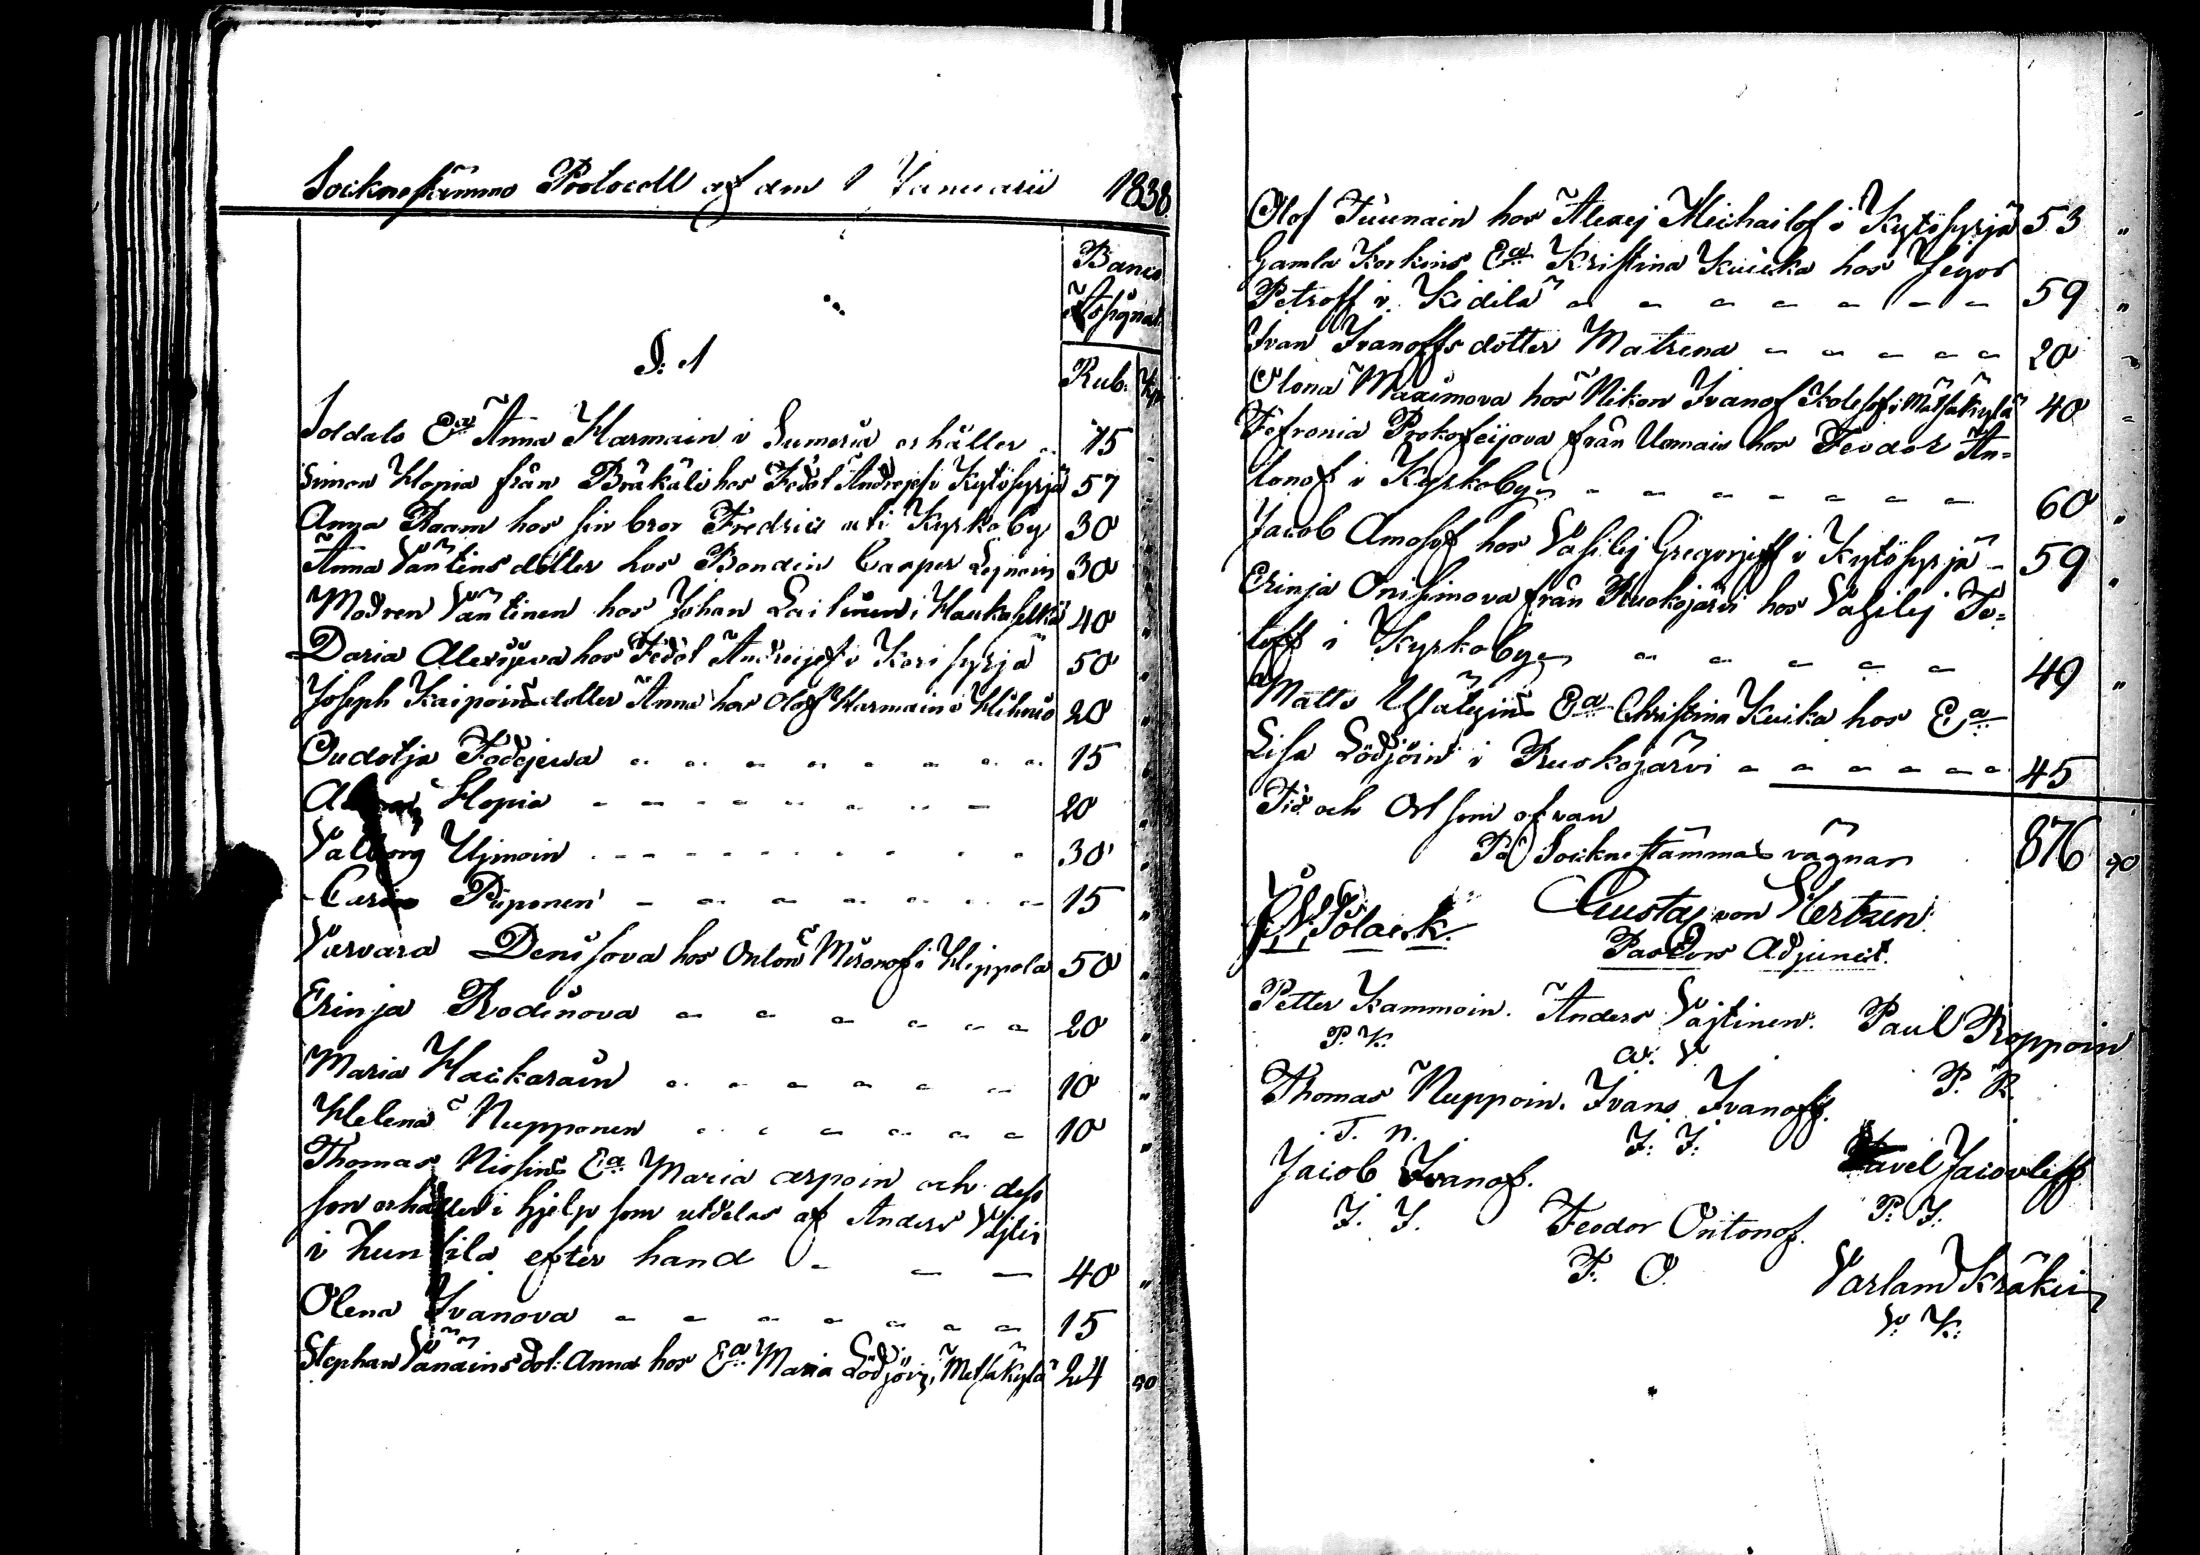 Sockneskämmo Protocoll af den 1 Januarii 1838.
Banco
Assignat.
§. 1
Rub. Kop
Soldats Ea Anna Harmain i Sumeria erhåller 15
Simon Hopia från Bräkälä hos Fedol Andrejef i Kytösyrjä 57 "
Anna Raam hos sin bror Fredric uti Kyrkoby 30 "
Anna Väntins dotter hos Bonden Casper Leinoin 30 "
Modren Väntinen hos Johan Lailinen i Haukaselkä 40 "
Daria Alexijeva hos Fedol Andreijef i Korisyrjä 50 "
Joseph Kaipoins dotter Anna hos Olof Harmain i Hihnio 20 "
Oudotja Fodejewa 15 "
Hopia 20 "
Valborg Ujmoin 30 "
Carin Piiponen 15 "
Varvara Denisova hos Onton Mironof i Hippola 50 "
Erinja Rodinova 20 "
Maria Hackarain 10 "
Helena Nupponen 10 "
Thomas Nissins Ea Maria arpoin och dess
son erhåller i hjelp som utdelas af Anders Väjtin
i Hunsila efter hand 40 "
Olena Ivanova 15
Stephan Vänäins dot: Anna hos Ea Maria Lödjöin, Metsäkylä 24 90
Olof Tuunain hos Alexej Michailof i Kytösyrjä 53 "
Gamla Korkins Ea Kristina Kuicka hos Jegor
Petroff i Kidilä 59 "
Ivan Ivanoffs dotter Matrena 20 "
Olona Maximova hos Nikon Ivanof Kolesof i Mätsäkylä 40 "
Fefronia Prokofeijova från Uomais hos Feodor An=
tonof i Kyrkoby 60 "
Jacob Amosof hos Vasilej Gregorjeff i Kytösyrjä 59 "
Erinja Onisimova från Ruokojärvi hos Vasilej Fo=
toff i Kyrkoby 49 "
Matts Ea Christina Kuika hos Ea
Lisa Lödjöin i Ruokojärvi 45
Tid och Ort som ofvan
På Socknestämmas vägnar 876 90
Polack. Gustaf von Hertzen
Pastors Adjunct.
Petter Kammoin. Anders Väjtinen. Paul Roppoin
P. K. A. V. P. R.
Thomas Nuppoin. Ivan Ivanoff.
T. N. I. I.
Jacob Ivanof. Pavel Jacovleff
J. I. Feodor Ontonof. P. J.
F. O. Varlam Kräkin
V. K.